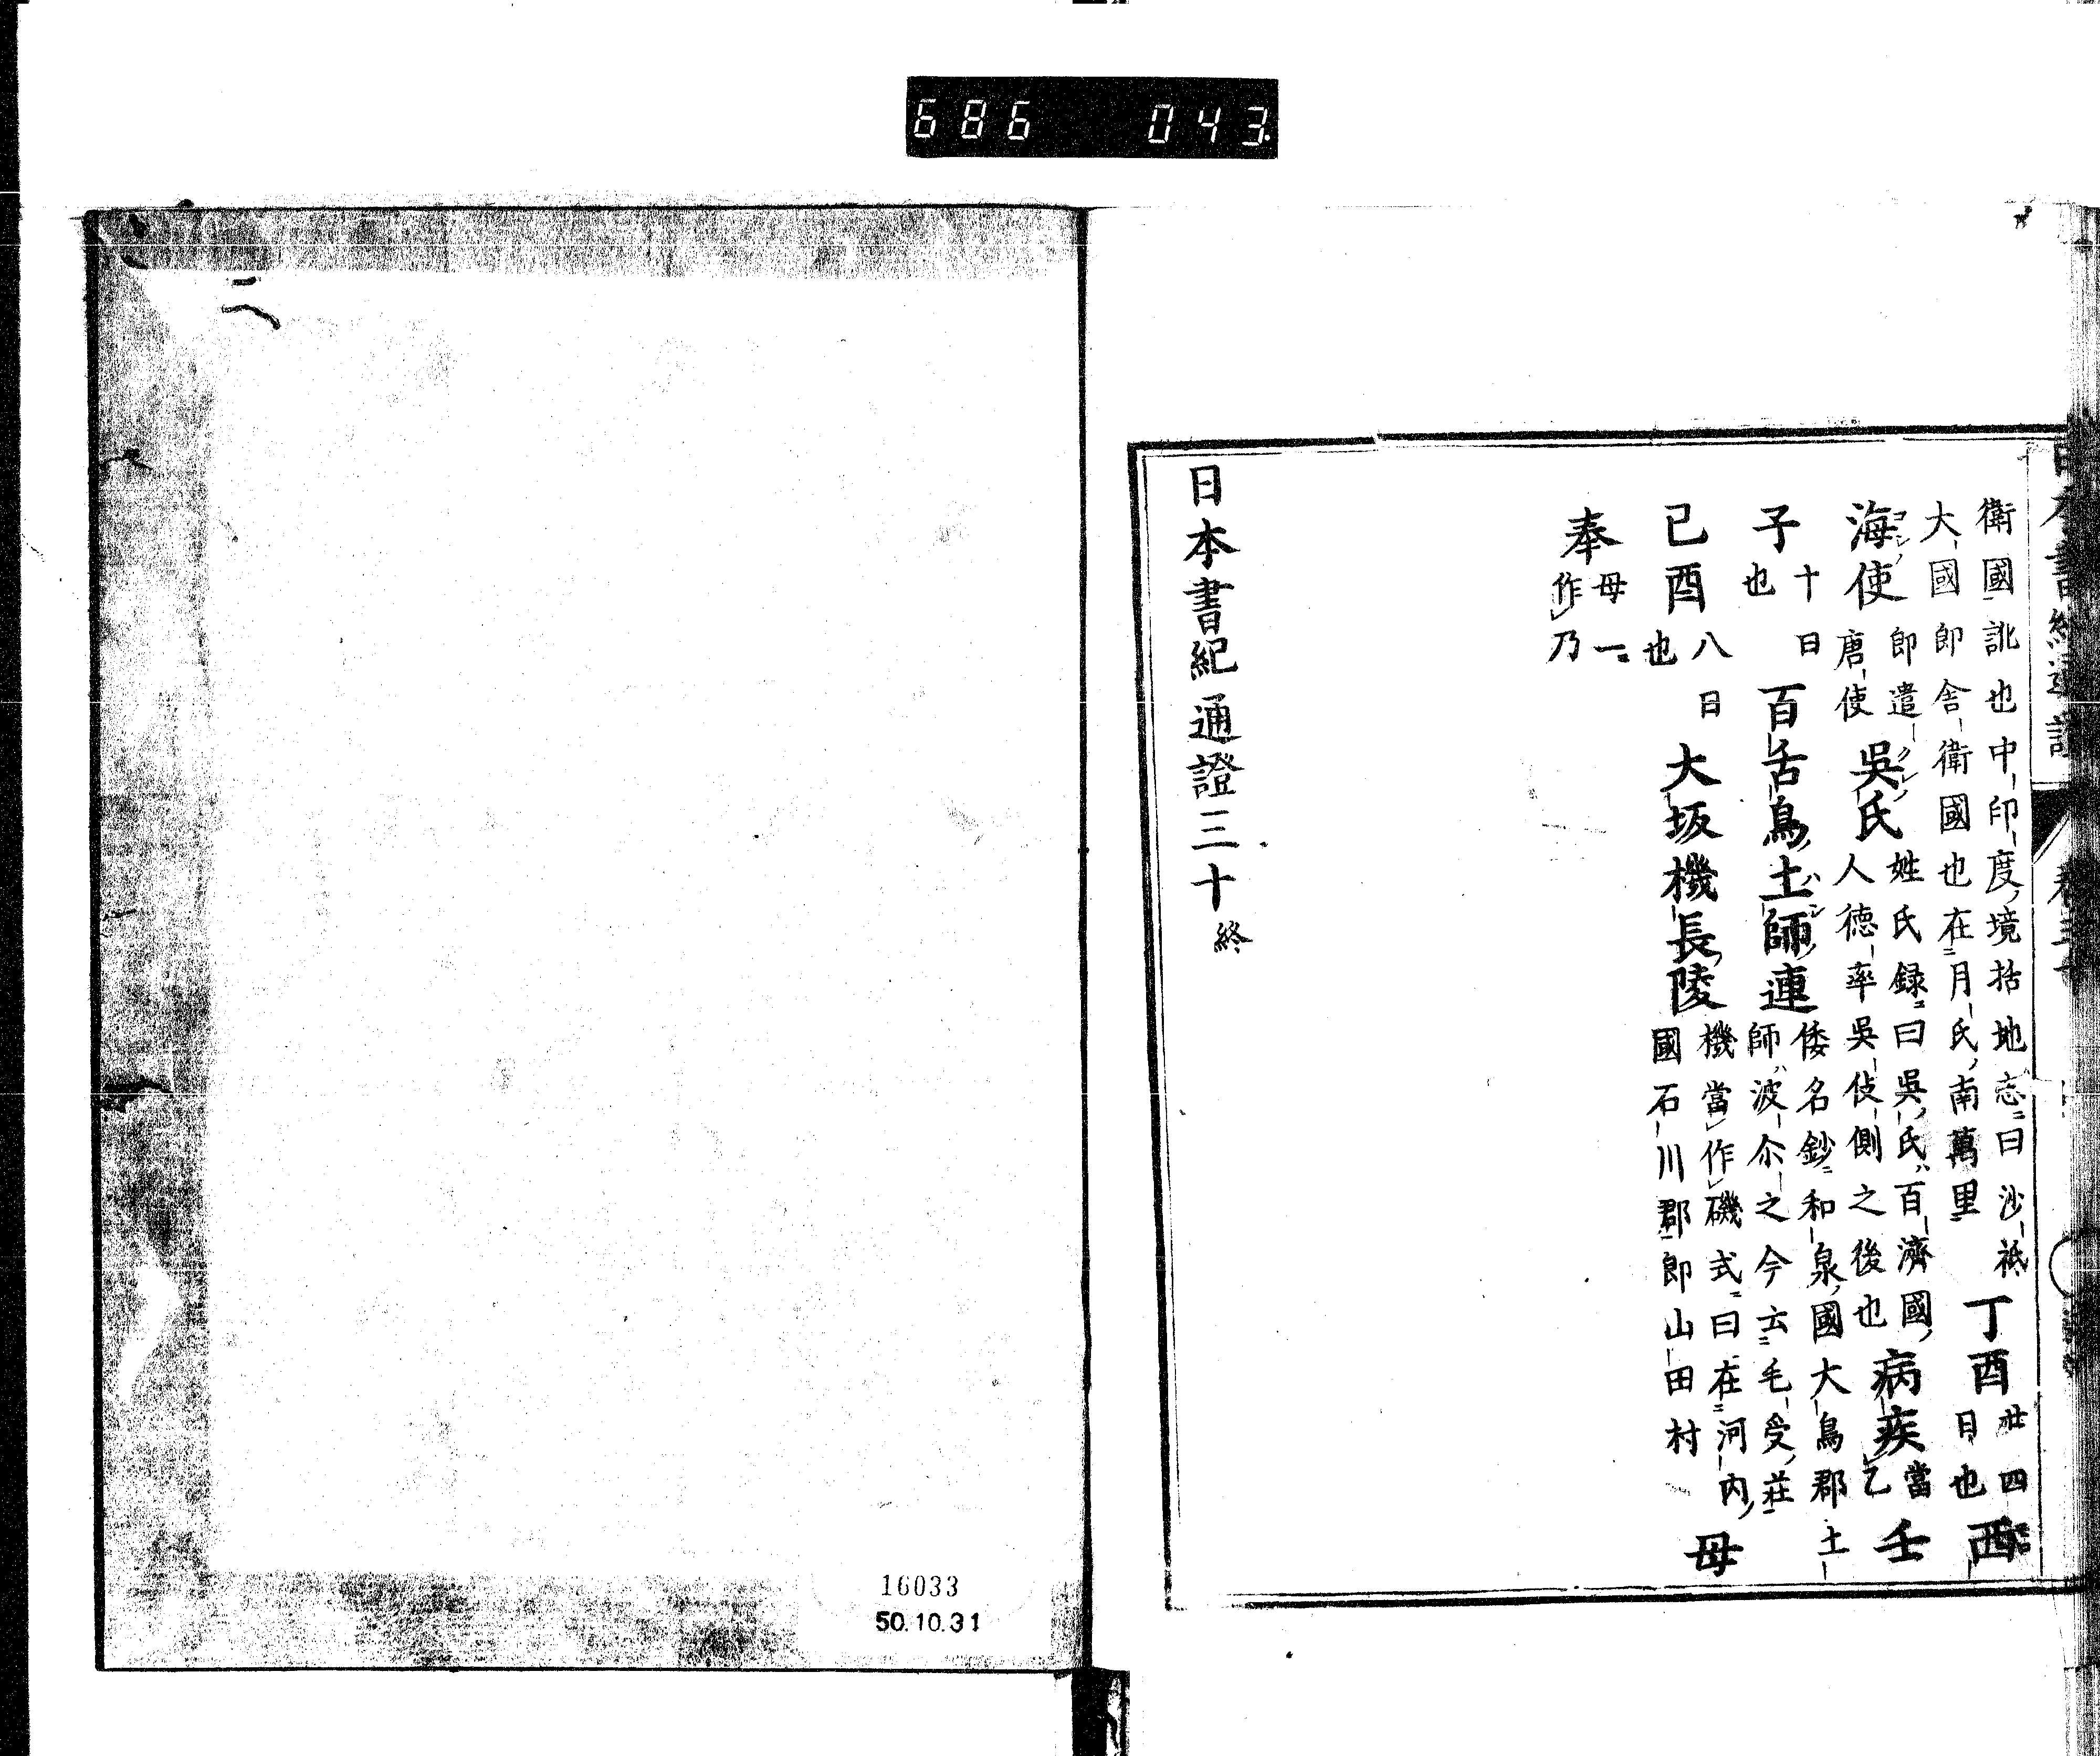 686 043
日本書紀通證
衛國訛也中印度境括地志曰沙祇
大國即舍衛國也在月氏南萬里
丁酉
廿四
日也
西
海使
即遣
唐使
吳氏
姓氏録曰吳氏百濟國
人徳率吳伎側之後也
病疾
當
乙
壬
子
十日
也
百舌鳥土師連
倭名鈔和泉國大鳥郡土
師波尒之今云毛受莊
己酉
八日
也
大坂機長陵
機當作磯式曰在河内
國石川郡即山田村
母
奉
母一
作乃
日本書紀通證三十終
16033
50.10.31